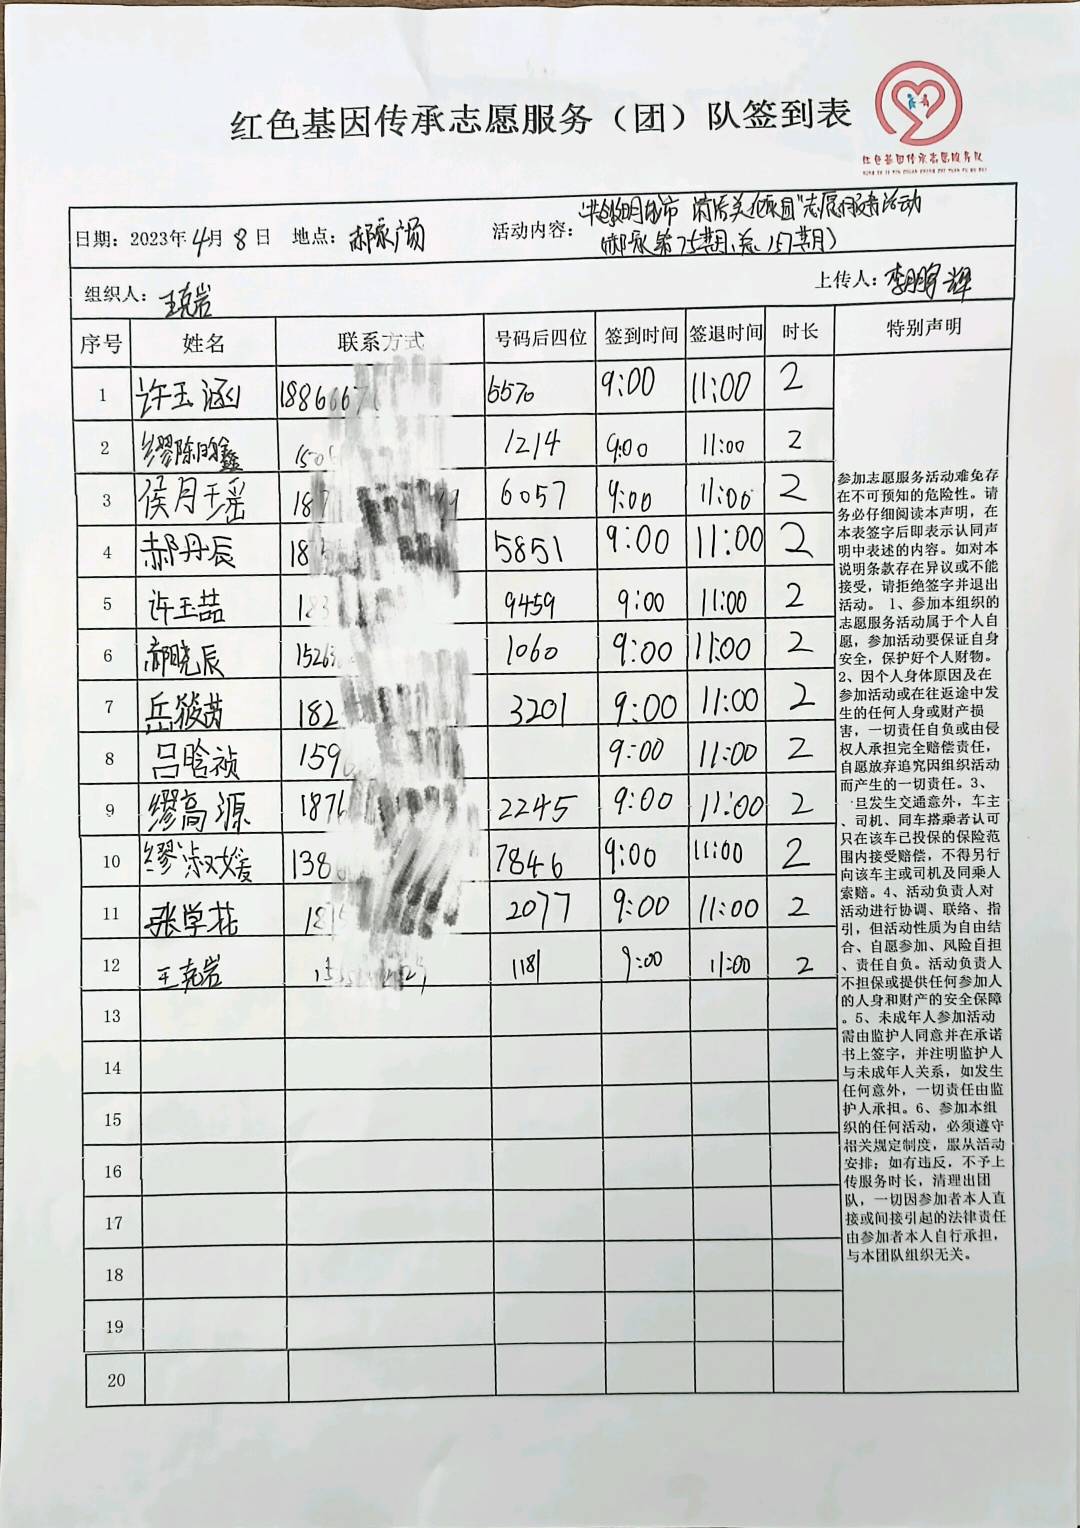 红色基因传承志愿服务（团）队签到表
红色基因传承志愿服务队
日期：2023年4月8日 地点：郝家广场 活动内容：
志愿服务活动
组织人：王克岩 上传人：李鹏辉
序号 姓名 联系方式 号码后四位 签到时间 签退时间 时长 特别声明
1 许玉涵 1886667 6570 9:00 11:00 2
2 缪陈 1214 9:00 11:00 2
3 侯月千瑶 187 6057 9:00 11:00 2
4 郝丹辰 18 5851 9:00 11:00 2
5 许玉喆 183 9459 9:00 11:00 2
6 郝晓辰 1526 1060 9:00 11:00 2
7 岳筱芮 182 3201 9:00 11:00 2
8 吕晗祯 159 9:00 11:00 2
9 缪高源 1876 2245 9:00 11:00 2
10 缪淑媛 138 7846 9:00 11:00 2
11 张学花 18 2077 9:00 11:00 2
12 王克岩 1181 9:00 11:00 2
13
14
15
16
17
18
19
20
参加志愿服务活动难免存
在不可预知的危险性。请
务必仔细阅读本声明，在
本表签字后即表示认同声
明中表述的内容。如对本
说明条款存在异议或不能
接受，请拒绝签字并退出
活动。1、参加本组织的
志愿服务活动属于个人自
愿，参加活动要保证自身
安全，保护好个人财物。
2、因个人身体原因及在
参加活动或在往返途中发
生的任何人身或财产损
害，一切责任自负或由侵
权人承担完全赔偿责任，
自愿放弃追究因组织活动
而产生的一切责任。3、
旦发生交通意外，车主
、司机、同车搭乘者认可
只在该车已投保的保险范
围内接受赔偿，不得另行
向该车主或司机及同乘人
索赔。4、活动负责人对
活动进行协调、联络、指
引，但活动性质为自由结
合、自愿参加、风险自担
、责任自负。活动负责人
不担保或提供任何参加人
的人身和财产的安全保障
。5、未成年人参加活动
需由监护人同意并在承诺
书上签字，并注明监护人
与未成年人关系，如发生
任何意外，一切责任由监
护人承担。6、参加本组
织的任何活动，必须遵守
相关规定制度，服从活动
安排；如有违反，不予上
传服务时长，清理出团
队，一切因参加者本人直
接或间接引起的法律责任
由参加者本人自行承担，
与本团队组织无关。